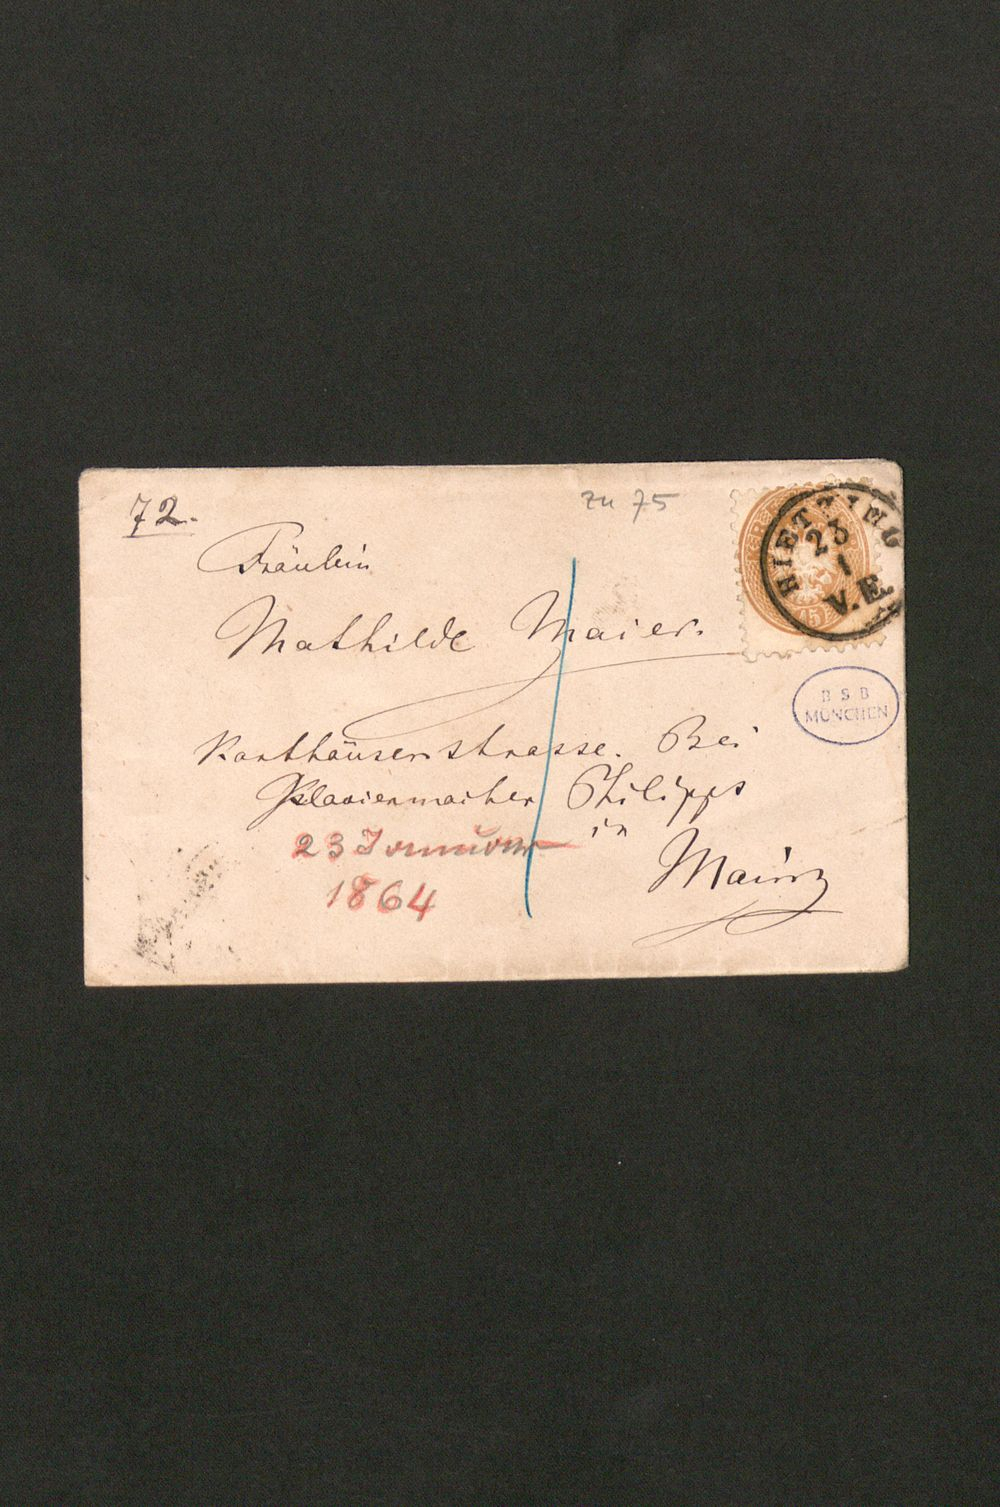 72.
zu 75
Fräulein
Mathilde Maier.
Karthäuserstrasse. Bei
Klaviermacher Philipps
in
Mainz
23 Januar
1864
HIETZING
23
1
V. E.
15
BSB
MÜNCHEN